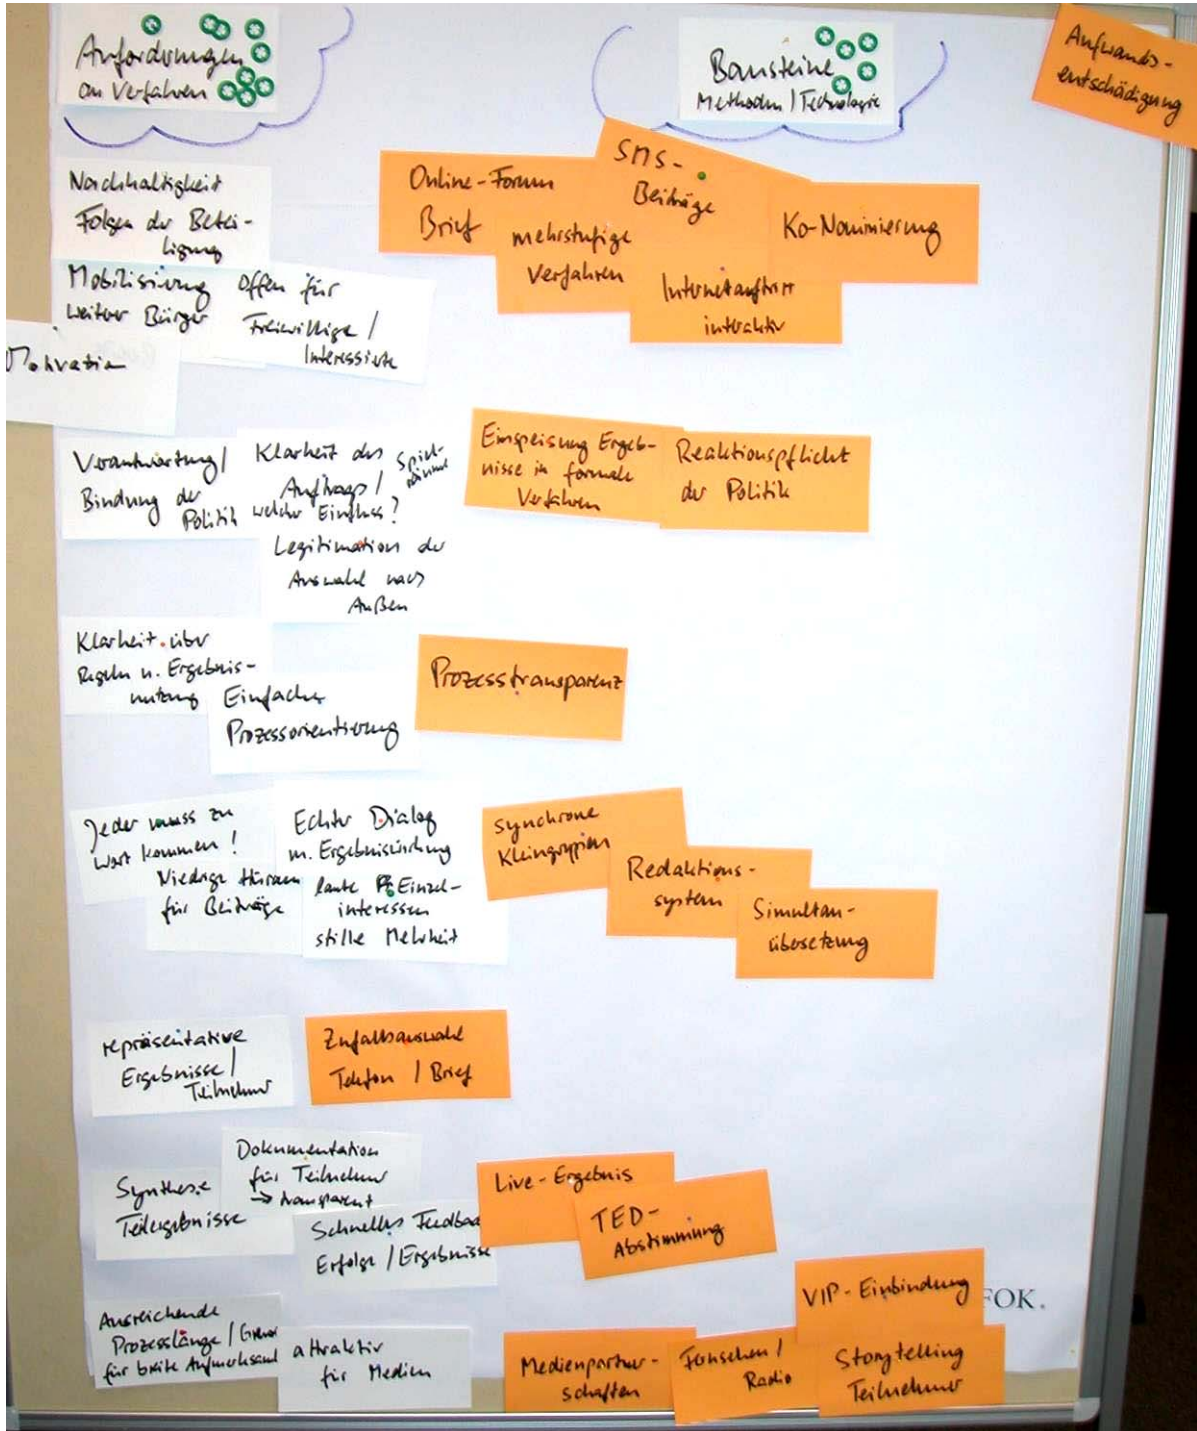 Anforderungen
an Verfahren
Bausteine
Methoden / Technologie
Aufwands-
entschädigung
Nachhaltigkeit
Folgen der Betei-
ligung
Mobilisierung
weiterer Bürger
Offen für
Freiwillige /
Interessierte
Motivation
Online-Forum
Brief
SMS-
Beiträge
mehrstufige
Verfahren
Internetauftritt
interaktiv
Ko-Nominierung
Verantwortung /
Bindung der
Politik
Klarheit des
Auftrags /
Spiel-
räume
welcher Einfluss?
Legitimation der
Auswahl nach
Außen
Einspeisung Ergeb-
nisse in formale
Verfahren
Reaktionspflicht
der Politik
Klarheit über
Regeln u. Ergebnis-
nutzung
Einfache
Prozessorientierung
Prozesstransparenz
Jeder muss zu
Wort kommen!
Niedrige Hürden
für Beiträge
Echter Dialog
m. Ergebniswirkung
laute Einzel-
interessen
stille Mehrheit
Synchrone
Kleingruppen
Redaktions-
system
Simultan-
übersetzung
repräsentative
Ergebnisse /
Teilnehmer
Zufallsauswahl
Telefon / Brief
Synthese
Teilergebnisse
Dokumentation
für Teilnehmer
→ transparent
Schnelles Feedbac
Erfolge / Ergebnisse
Live-Ergebnis
TED-
Abstimmung
Ausreichende
Prozesslänge /
für breite Aufmerksamk
attraktiv
für Medien
Medienpartner-
schaften
Fernsehen /
Radio
VIP-Einbindung
Storytelling
Teilnehmer
FOK.